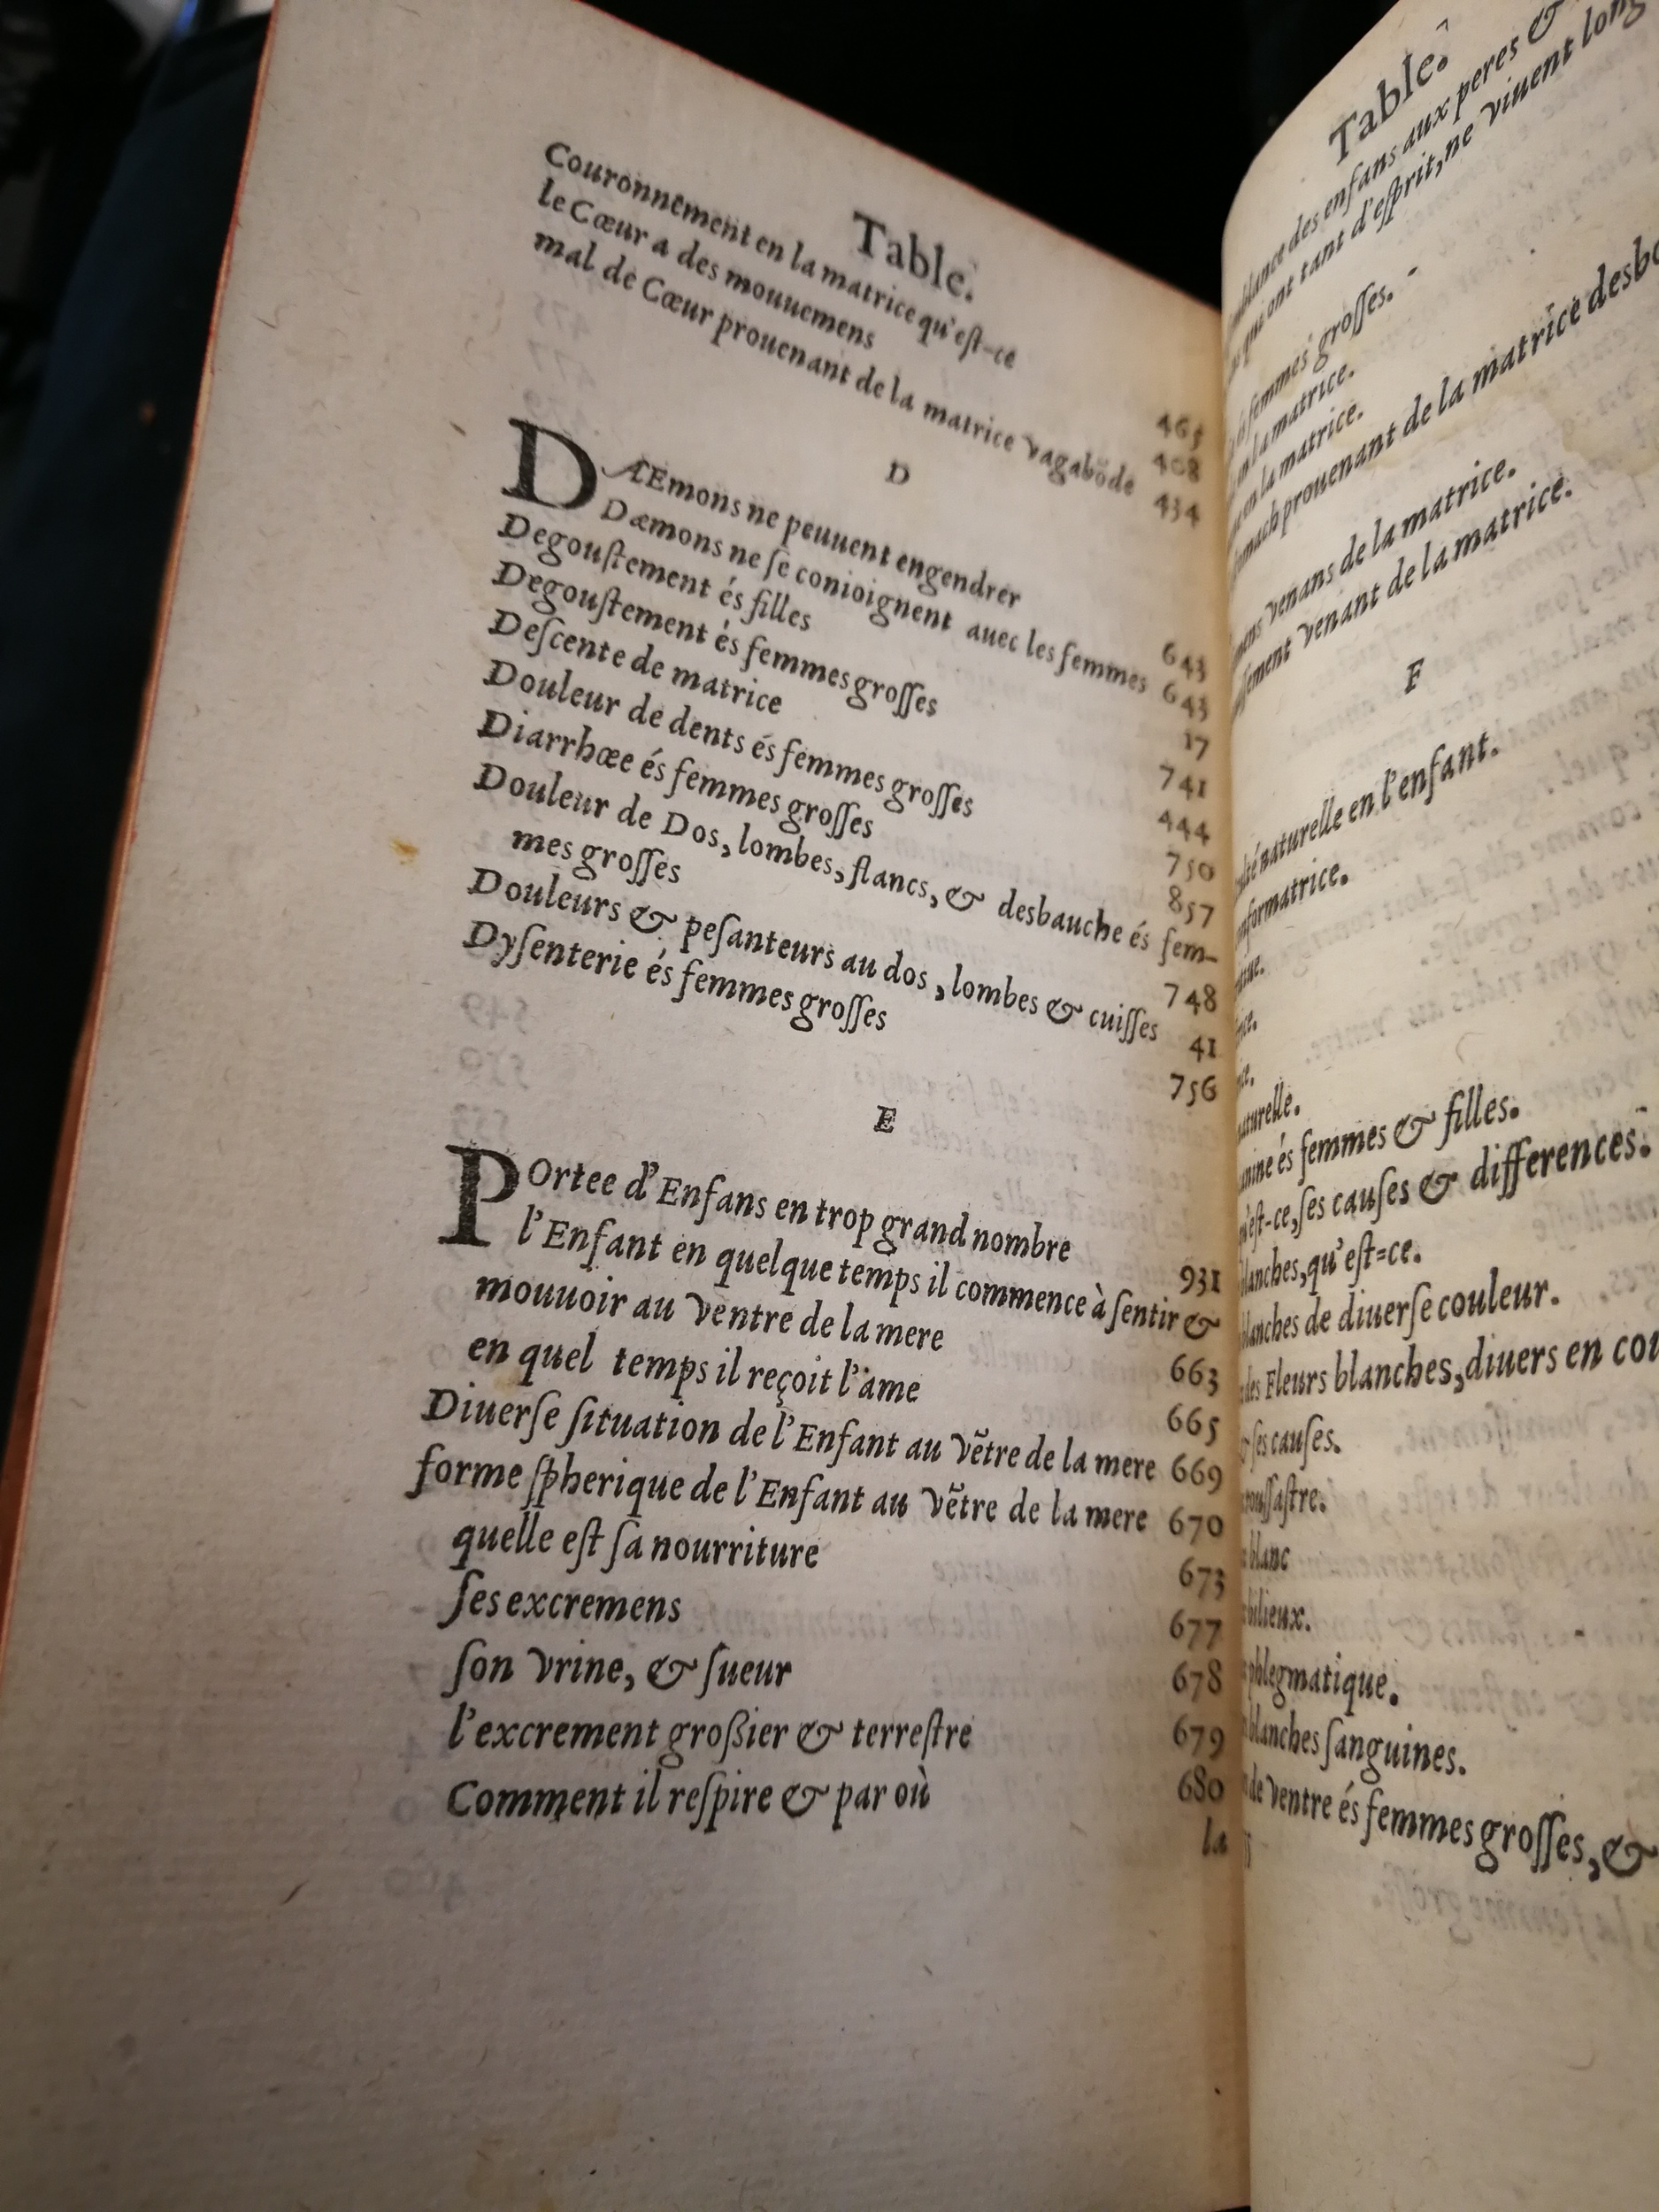 Table.
Couronnement en la matrice qu'eſt-ce 465
le Cœur a des mouuemens 408
mal de Cœur prouenant de la matrice vagabōde 434
D
DÆmons ne peuuent engendrer 643
Dæmons ne ſe conioignent auec les femmes 643
Degouſtement és filles 17
Degouſtement és femmes groſſes 741
Deſcente de matrice 444
Douleur de dents és femmes groſſes 750
Diarrhœe és femmes groſſes 857
Douleur de Dos, lombes, flancs, & desbauche és fem-
mes groſſes 748
Douleurs & peſanteurs au dos, lombes & cuiſſes 41
Dyſenterie és femmes groſſes 756
E
POrtee d'Enfans en trop grand nombre 931
l'Enfant en quelque temps il commence à ſentir &
mouuoir au ventre de la mere 663
en quel temps il reçoit l'ame 665
Diuerſe ſituation de l'Enfant au vẽtre de la mere 669
forme ſpherique de l'Enfant au vẽtre de la mere 670
quelle eſt ſa nourriture 673
ſes excremens 677
ſon vrine, & ſueur 678
l'excrement großier & terreſtre 679
Comment il reſpire & par où 680
la
Table.
des enfans aux peres &
qui ont tant d'eſprit, ne viuent long
femmes groſſes.
en la matrice.
en la matrice.
prouenant de la matrice desbo
venans de la matrice.
venant de la matrice.
F
naturelle en l'enfant.
és femmes & filles.
ſes cauſes & differences.
qu'eſt-ce.
de diuerſe couleur.
des Fleurs blanches, diuers en cou
ſes cauſes.
blanc
bilieux.
phlegmatique.
blanches ſanguines.
de ventre és femmes groſſes, &